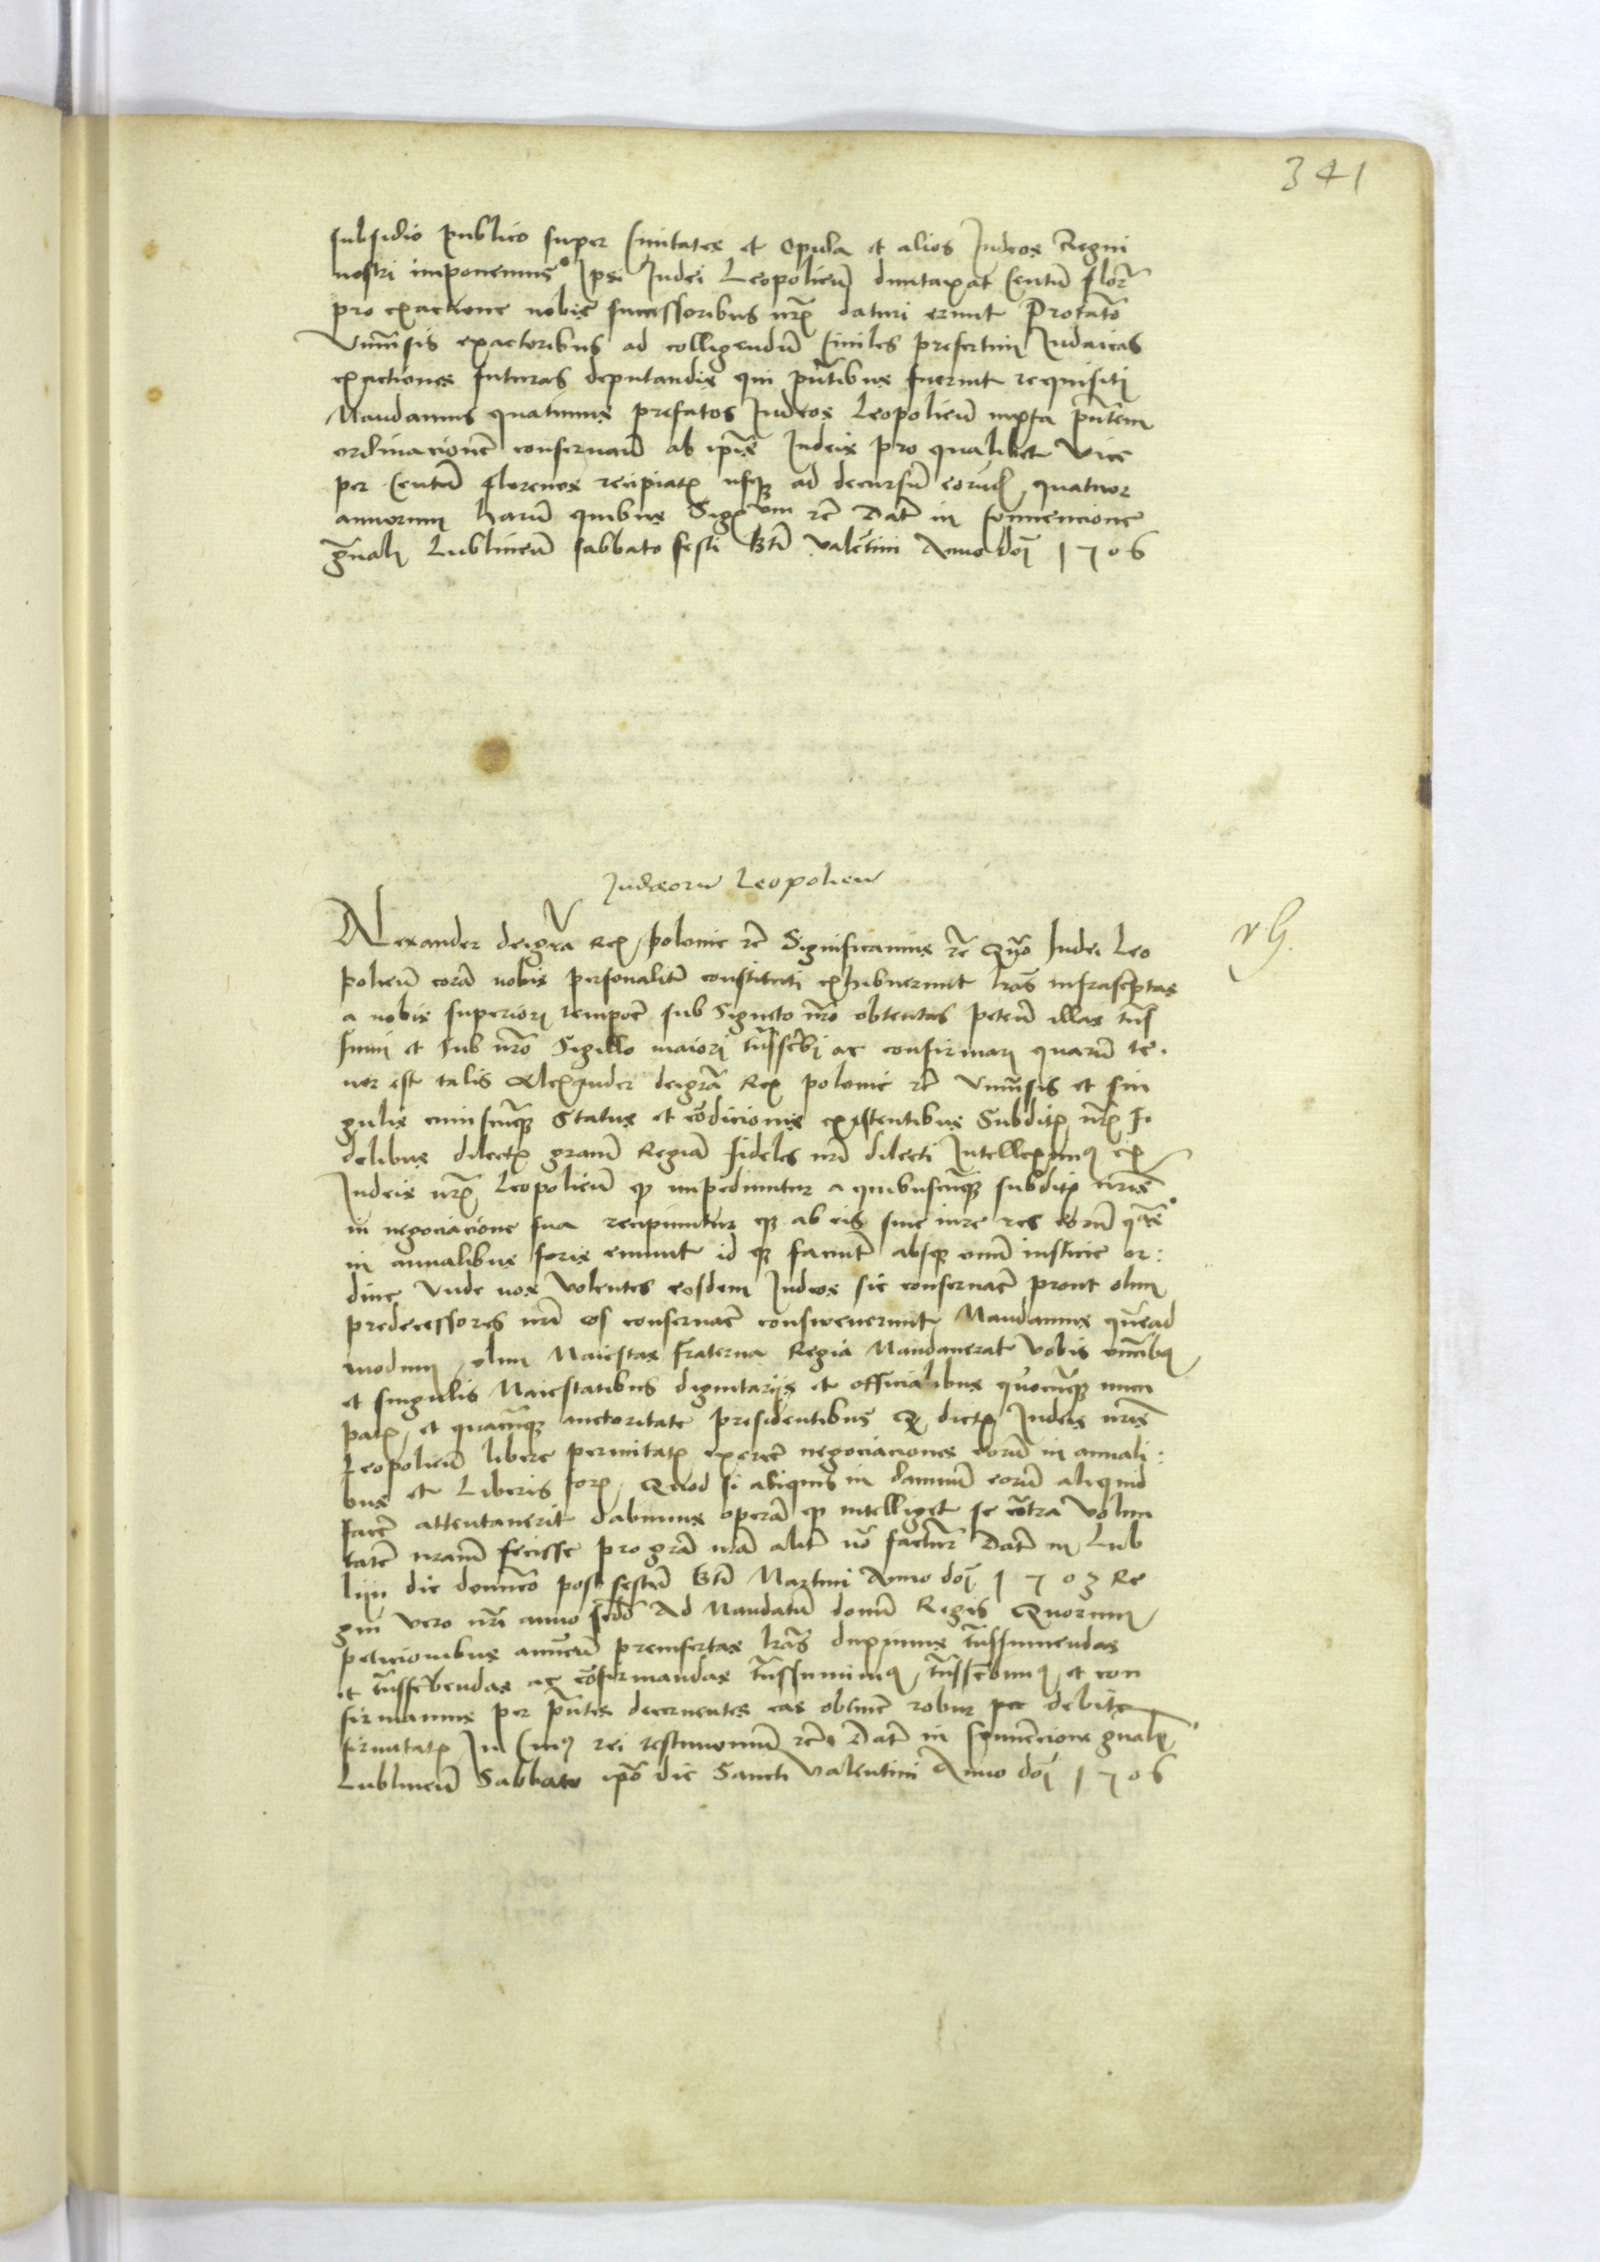 341
subsidio publico super Civitates et opida et alios Judeos Regni
nostri imponemus Ipsi Judei Leopolien̄ dumtaxat Centū flor̄
pro exactione nobis successoribus nr̄is daturi erunt
exactoribus ad colligendū Civiles presertim Judaicas
exactiones futuras deputandis qui pn̄tibus fuerint requisiti
Mandamus quatinus prefatos Judeos Leopolien̄ iuxta pn̄tem
ordinacionē ab ip̄is Judeis pro qualibet vice
per Centū florenos recipiat usq3 ad decursū quatuor
annorum harū quibus Sigillum rc̄ Dat̄ in Convencione
gn̄ali Lublinen̄ sabbato festi Bt̄i Valētini Anno doī 1506
Judæorū Leopolien
Alexander dei gr̄a Rex polonie rc̄ Significamus rc̄ Quō Judei Leo
polien̄ corā nobis personalit̄ constituti exhibuerunt lr̄as infrascriptas
a nobis superiori tempore sub Signeto nr̄o obtentas peten̄ illas
sumi et sub nr̄o Sigillo maiori ac confirmari quarū te
nor est talis Alexander dei gr̄a Rex polonie rc̄ et sin
gulis cuiuscūq3 Status et cōdicionis existentibus Subdit̄ nr̄is fi
delibus dilectis gram̄ Regiā fideles nr̄i dilecti Intelleximus ex
Judeis nr̄is Leopolien̄ q impediuntur a quibuscūq3 subdit̄ nr̄is
in negociacione sua recipiuntur q3 ab eis sine iure res eorū
in annalibus foris emunt id q3 faciunt absq3 omī iusticie or
dine Unde nos volentes eosdem Judeos sic conservare prout olim
predecessores nr̄i eos conservare consweverunt Mandamus quēad
modum olim Maiestas fraterna Regia Mandaverat vobis om̄ibus
et singulis Maiestatibus dignitarijs et officialibus quocūq3 nun
pat̄ et quacūq3 auctoritate presidentibus Q dictis Judeis nr̄is
Leopolien̄ libere permitatis exercē negociaciones eorū in annali
bus et Liberis foris Quod si aliquis in damnū eorū aliquid
facē attentaverit dabimus operā q intelliget se cōtra volun
tatē nr̄am fecisse pro gr̄a nr̄a alit̄ nō factur̄ Dat̄ in Lub
lijn die dominico post festū Bt̄i Martini Anno doī 1503 Re
gni vero nr̄i anno scd̄o Ad Mandatū domī Regis Quorum
peticionibus annuen̄ preinsertas lr̄as duximus trāssumendas
et trāsscribendas ac cōfirmandas trāssumimus trāsscribimus et con
firmamus per pn̄tes decernentes eas obtinē robur debite
firmitatis In Cuius rei testimoniū rc̄ Dat̄ in Convēcione gn̄ali
Lublinen̄ Sabbato ip̄o die Sancti Valentini Anno doī 1506